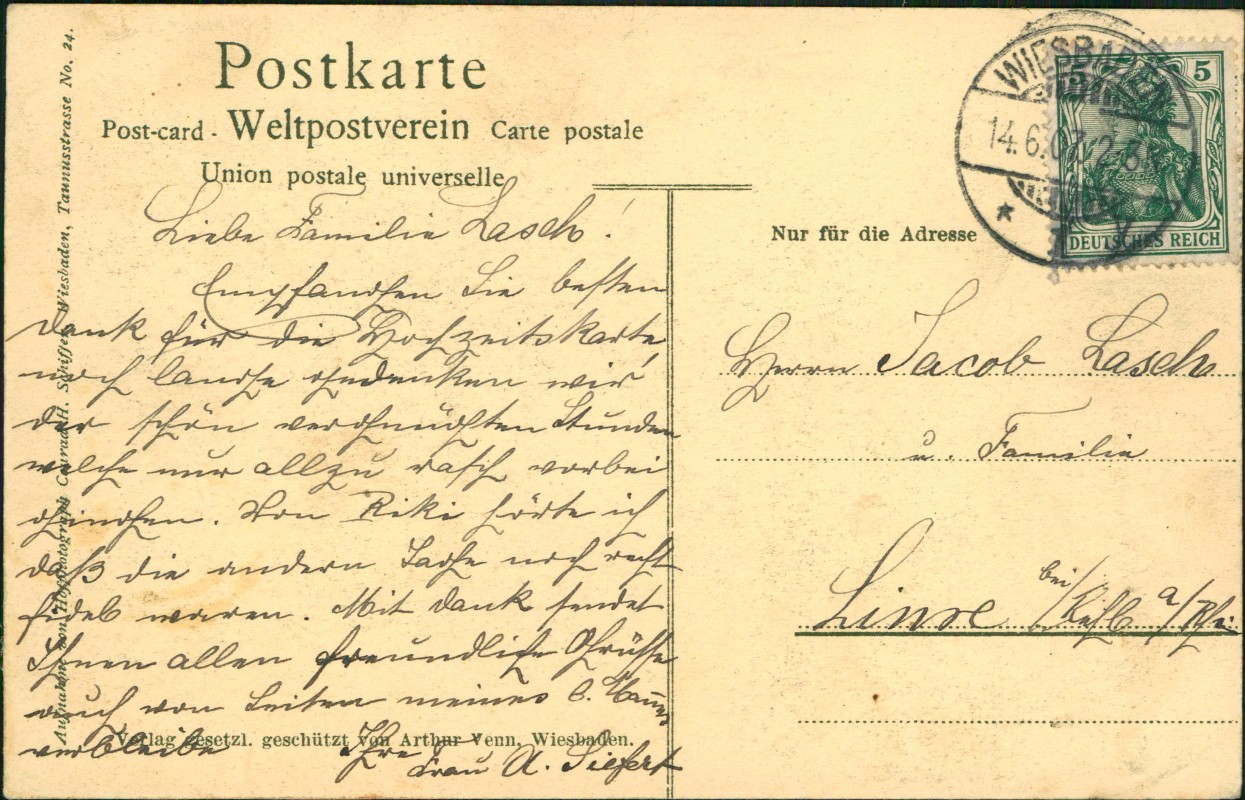 Postkarte
Post-card - Weltpostverein Carte postale
Union postale universelle
Liebe Familie Lasch!
Empfangen Sie besten
Dank für die Hochzeitskarte
noch lange gedenken wir
der schön vergnügten Stunden
welche nur allzu rasch vorbei
gingen. Von Riki hörte ich
daß die andern Tage noch recht
fidel waren. Mit Dank sendet
Ihnen allen freundliche Grüsse
auch von Seiten meines l. Mannes
verbleibe Ihre
Frau A. Siefert
Verlag gesetzl. geschützt von Arthur Venn, Wiesbaden.
Aufnahme von Hofphotograph Conrad H. Schiffer, Wiesbaden, Taunusstrasse No. 24.
WIESBADEN
14.6.07. 2-3
1
5
DEUTSCHES REICH
Nur für die Adresse
Herrn Jacob Lasch
u. Familie
bei
a/Rh: